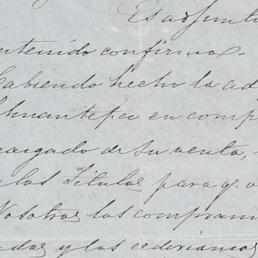 Es adjunt
ntenido confirmo.
abiendo hecho la ad
ehuantepec en comp
cargado de su venta,
los Titulos para q.
Nosotros los compram
dos y los cederiamos